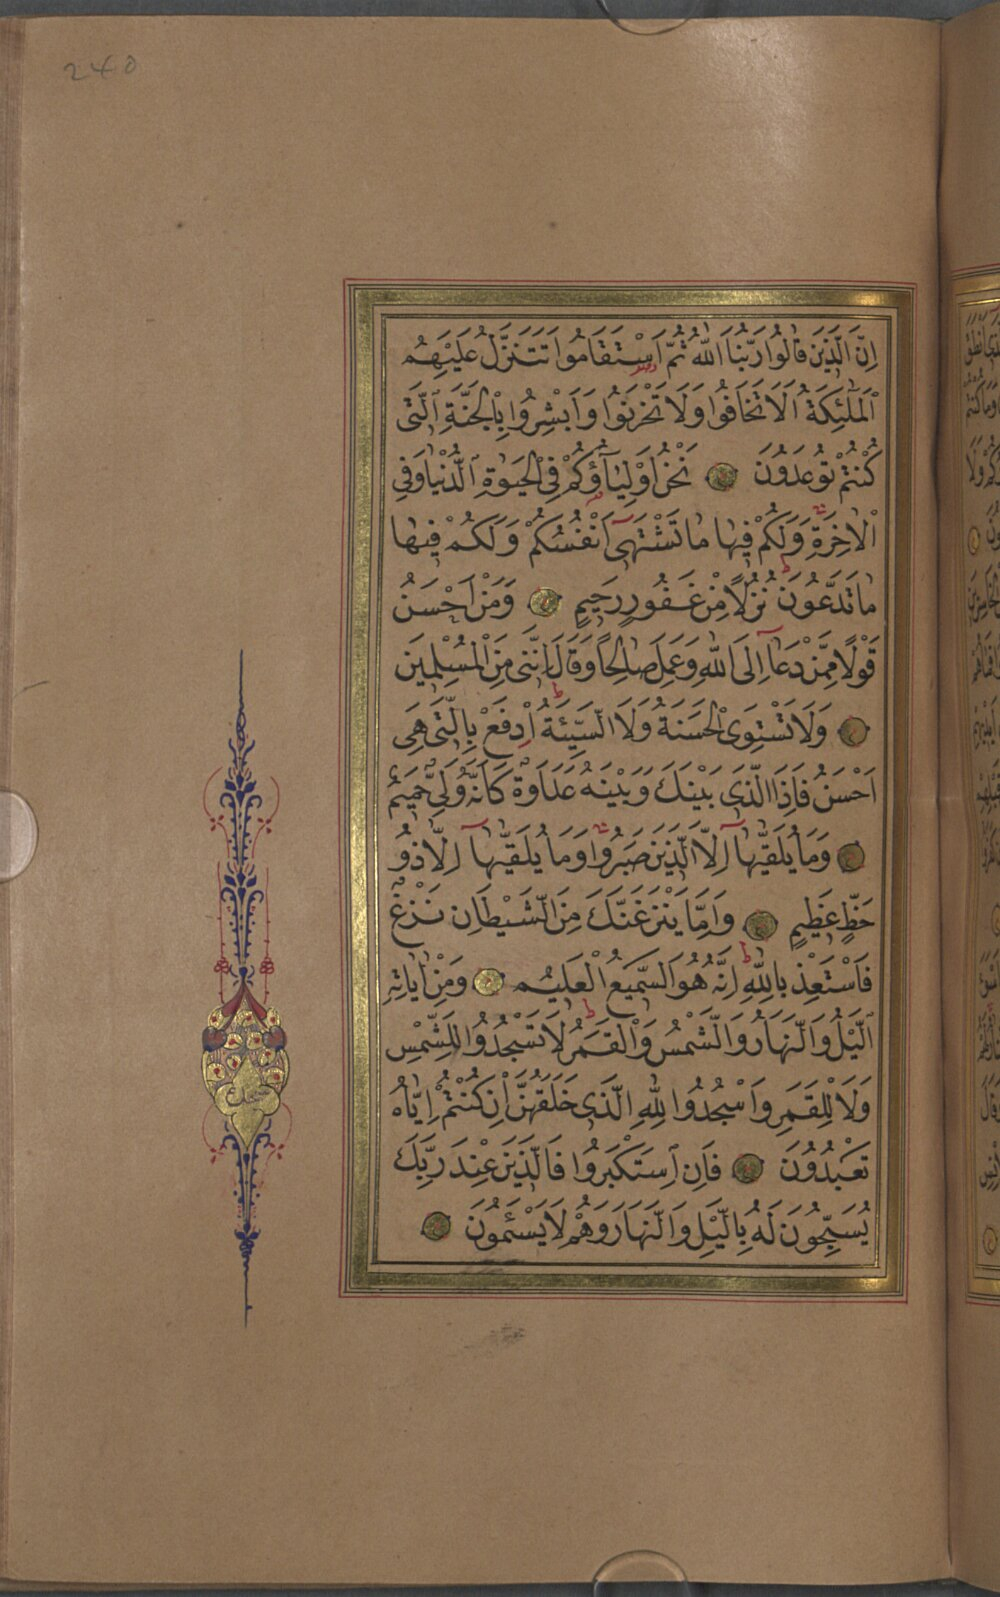 240
اِنَّ الَّذِينَ قَالُوا رَبُّنَا اللّٰهُ ثُمَّ اسْتَقَامُوا تَتَنَزَّلُ عَلَيْهِمُ
الْمَلٰٓئِكَةُ اَلَّا تَخَافُوا وَلَا تَحْزَنُوا وَاَبْشِرُوا بِالْجَنَّةِ الَّتِى
كُنْتُمْ تُوعَدُونَ نَحْنُ اَوْلِيَآؤُكُمْ فِى الْحَيٰوةِ الدُّنْيَا وَفِى
الْاٰخِرَةِ وَلَكُمْ فِيهَا مَا تَشْتَهِىٓ اَنْفُسُكُمْ وَلَكُمْ فِيهَا
مَا تَدَّعُونَ نُزُلًا مِنْ غَفُورٍ رَحِيمٍ وَمَنْ اَحْسَنُ
قَوْلًا مِمَّنْ دَعَآ اِلَى اللّٰهِ وَعَمِلَ صَالِحًا وَقَالَ اِنَّنِى مِنَ الْمُسْلِمِينَ
وَلَا تَسْتَوِى الْحَسَنَةُ وَلَا السَّيِّئَةُ اِدْفَعْ بِالَّتِى هِىَ
اَحْسَنُ فَاِذَا الَّذِى بَيْنَكَ وَبَيْنَهُ عَدَاوَةٌ كَاَنَّهُ وَلِىٌّ حَمِيمٌ
وَمَا يُلَقّٰيهَآ اِلَّا الَّذِينَ صَبَرُوا وَمَا يُلَقّٰيهَآ اِلَّا ذُو
حَظٍّ عَظِيمٍ وَاِمَّا يَنْزَغَنَّكَ مِنَ الشَّيْطَانِ نَزْغٌ
فَاسْتَعِذْ بِاللّٰهِ اِنَّهُ هُوَ السَّمِيعُ الْعَلِيمُ وَمِنْ اٰيَاتِهِ
الَّيْلُ وَالنَّهَارُ وَالشَّمْسُ وَالْقَمَرُ لَا تَسْجُدُوا لِلشَّمْسِ
وَلَا لِلْقَمَرِ وَاسْجُدُوا لِلّٰهِ الَّذِى خَلَقَهُنَّ اِنْ كُنْتُمْ اِيَّاهُ
تَعْبُدُونَ فَاِنِ اسْتَكْبَرُوا فَالَّذِينَ عِنْدَ رَبِّكَ
يُسَبِّحُونَ لَهُ بِالَّيْلِ وَالنَّهَارِ وَهُمْ لَا يَسْئَمُونَ
سجدة